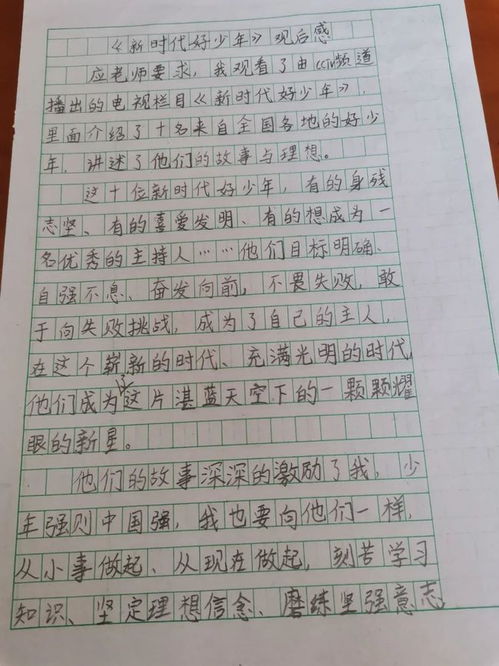 《新时代好少年》观后感
应老师要求，我观看了由cctv频道
播出的电视栏目《新时代好少年》，
里面介绍了十名来自全国各地的好少
年，讲述了他们的故事与理想。
这十位新时代好少年，有的身残
志坚、有的喜爱发明、有的想成为一
名优秀的主持人……他们目标明确、
自强不息、奋发向前，不畏失败，敢
于向失败挑战，成为了自己的主人，
在这个崭新的时代、充满光明的时代，
他们成为这片湛蓝天空下的一颗颗耀
眼的新星。
他们的故事深深的激励了我，少
年强则中国强，我也要向他们一样，
从小事做起、从现在做起，刻苦学习
知识、坚定理想信念、磨练坚强意志、